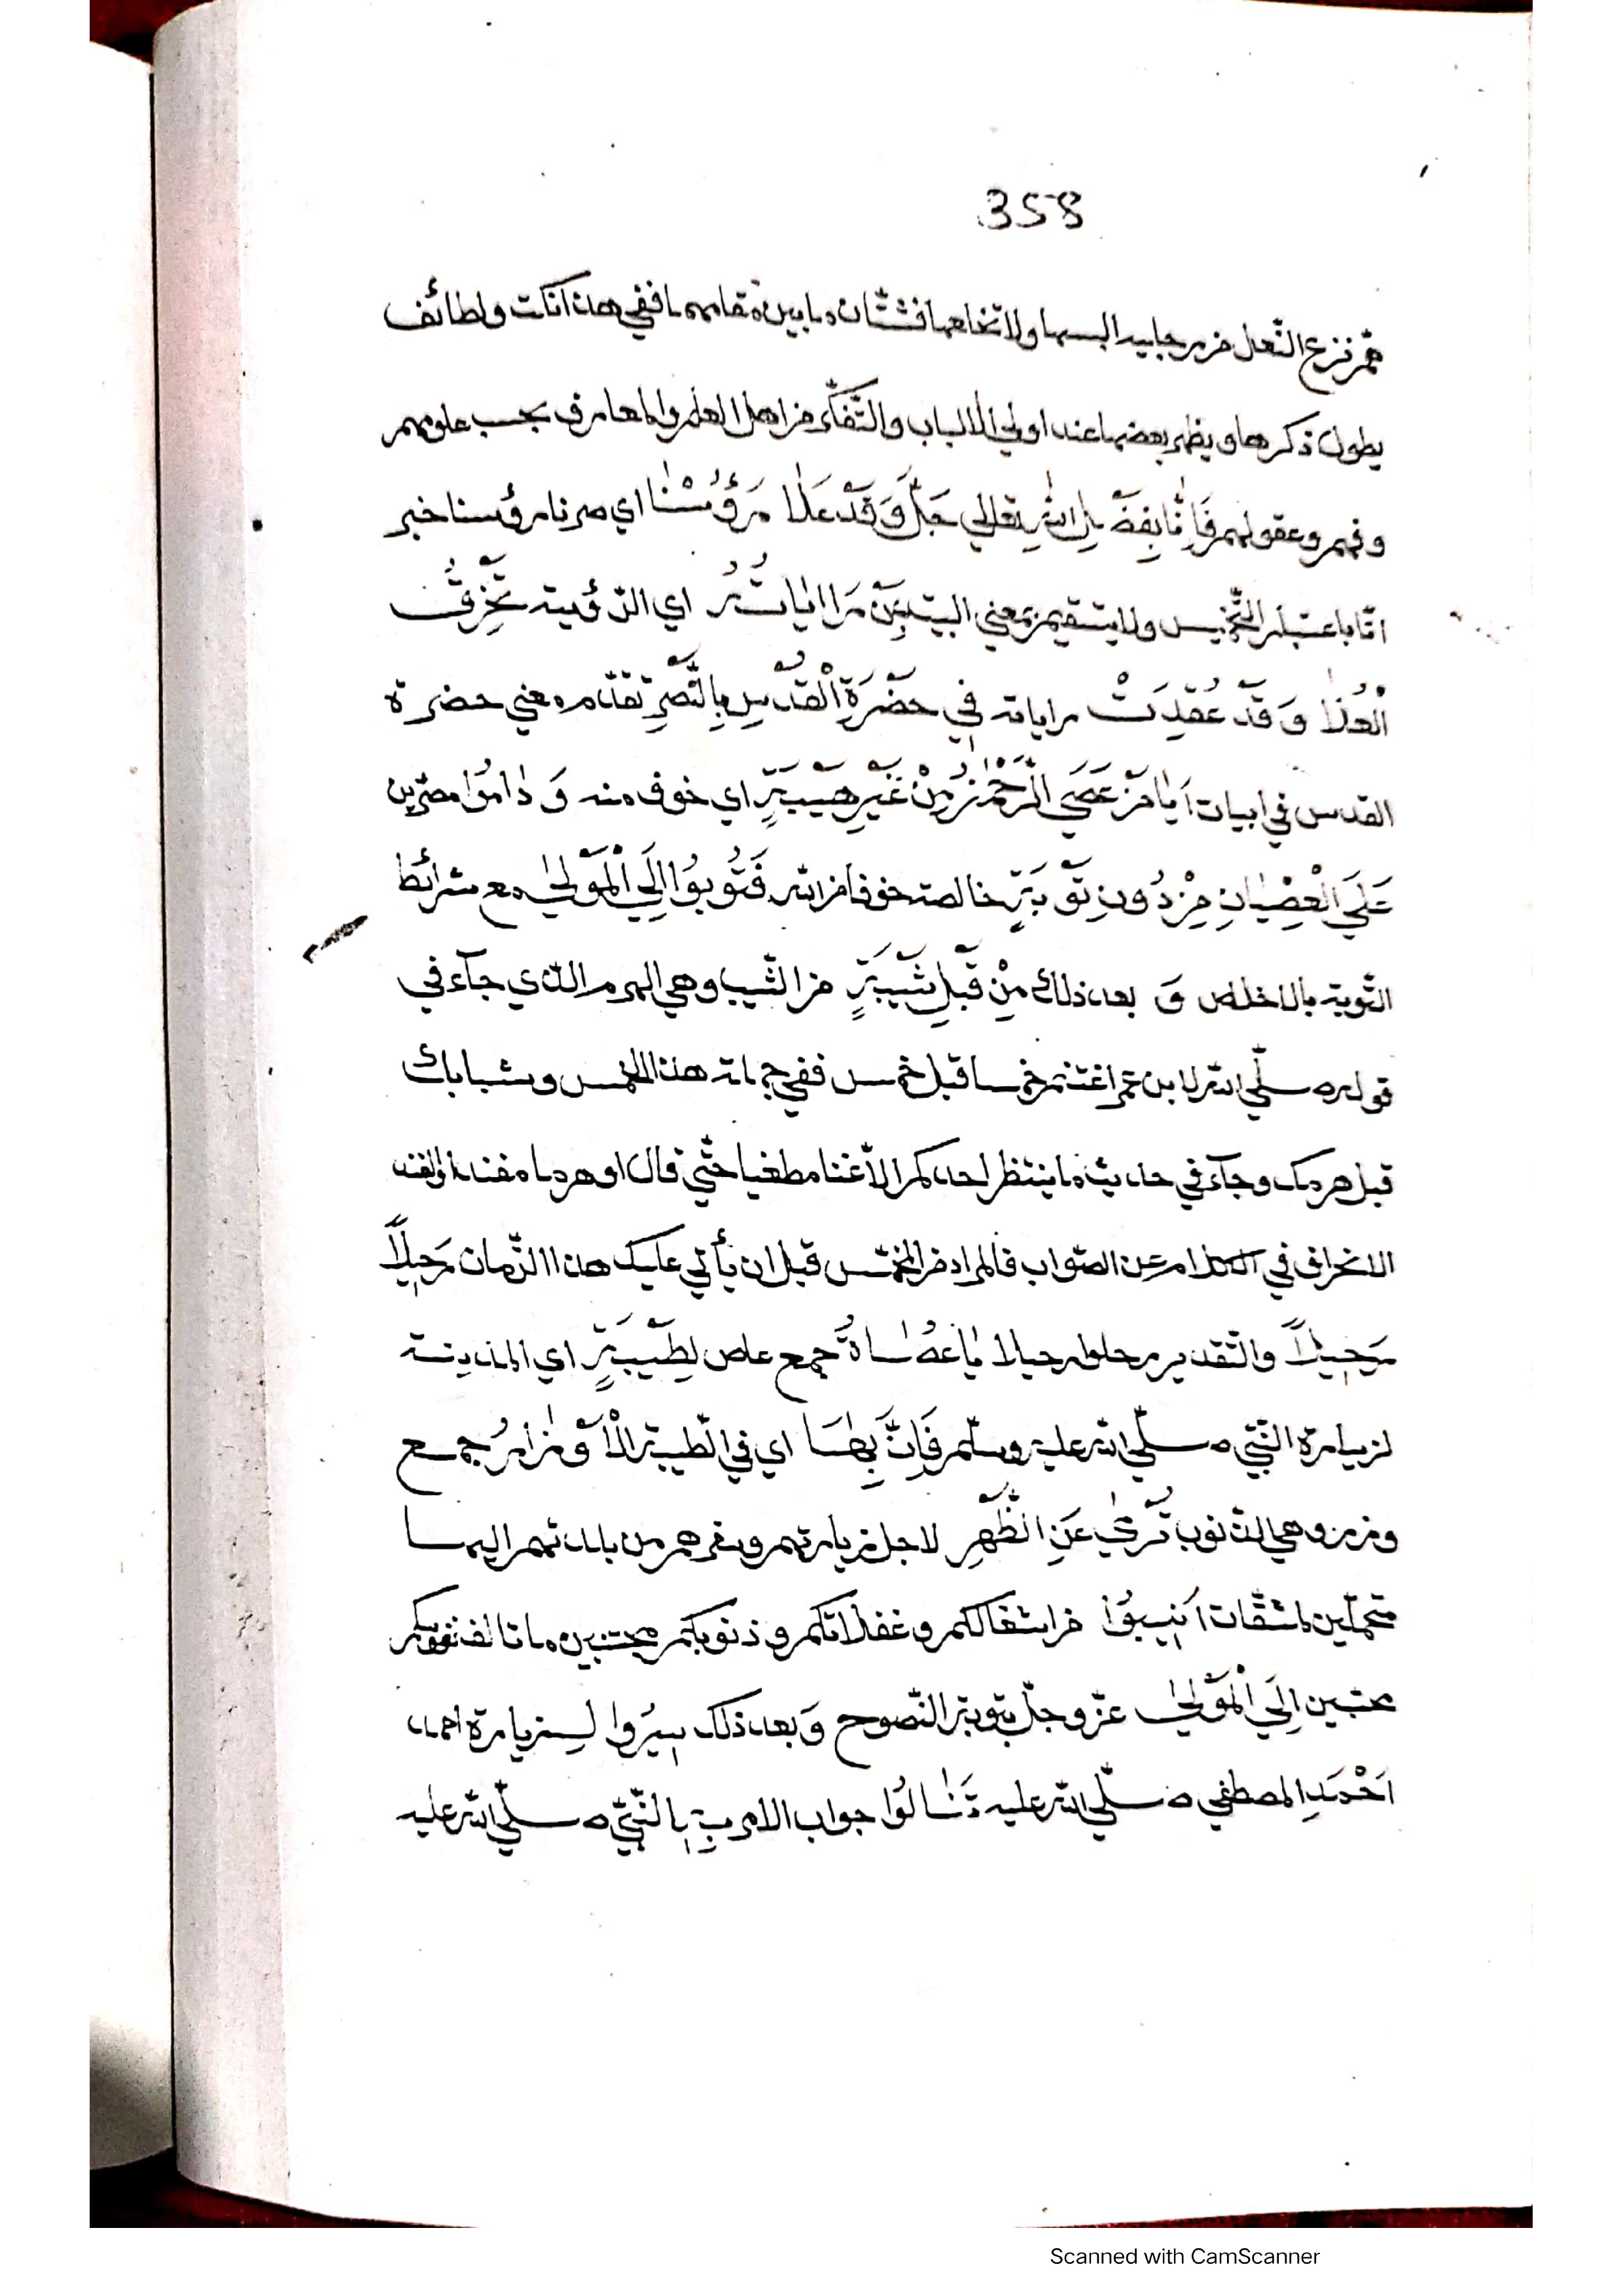 358
همّ نزع النّعل من رجليه البسها ولا تخلعهما فشتّان ما بين مقامهما ففي هذا نكات ولطائف
يطول ذكرها ويظهر بعضها عند اولي الالباب والتّفكّر من اهل العلم والمعارف بحسب علومهم
وفهم وعقولهم فَاِنَّا بِفَضْلِ اللهِ تعالي جَلَّ وَقَدْ عَلَا رَؤُسُنَا اي صرنا رؤسنا خبر
امّا باعتبار التّخميس ولا يستقيم بمعني البيتين رَايَاتُهُ اي الرّؤية تَخْرِقُ
الْعُلَا وَقَدْ عُقِدَتْ راياته فِي حَضْرَةِ الْقُدْسِ بِالنَّصْرِ تقدّم معني حضرة
القدس في ابيات اَيَا مَنْ عَصَي الرَّحْمٰنَ مِنْ غَيْرِ هَيْبَةٍ اي خوف منه وَدَامُوا مصرّين
عَلَي الْعِصْيَانِ مِنْ دُونِ تَوْبَةٍ خالصة خوفا من الله فَتُوبُوا اِلَي الْمَوْلَي مع شرائط
التّوبة بالاخلاص وَ بعد ذلك مِنْ قَبْلِ شَيْبَةٍ من الشّيب وهي الهرم الّذي جآء في
قوله صلّي الله لابن عمر اغتنم خمسا قبل خمس ففي جملة هذا الخمس وشبابك
قبل هرمك وجآء في حديث ما ينتظر احدكم الاّ غنا مطغيا حتّي قال او هرما مفندا والفند
الانحراف في الكلام عن الصّواب فالمراد من الخمس قبل ان يأتي عليك هذا الزّمان رَحِيلًا
رَحِيلًا والتّقدير رحلوا رحيلا يَا عُصَاةُ جمع عاص لِطَيْبَةٍ اي المدينة
لزيارة النّبيّ صلّي الله عليه وسلّم فَاِنَّ بِهَا اي في الطّيبة الْاَوْزَارُ جمع
وزر وهي الذّنوب تُرْمَي عَنِ الظَّهْرِ لاجل زيارتهم وسفرهم من بلدتهم اليها
متحمّلين المشقّات اَنِيبُوا من اشغالكم وغفلاتكم وذنوبكم مجتنبين ما تالف نفوسكم
محبّين اِلَي الْمَوْلَي عزّ وجلّ بتوبة النّصوح وَ بعد ذلك سِيرُوا لِزيارة احمد
اَحْمَدِ المصطفي صلّي الله عليه تَنَالُوا جواب الامر بِالنَّبِيّ صلّي الله عليه
Scanned with CamScanner